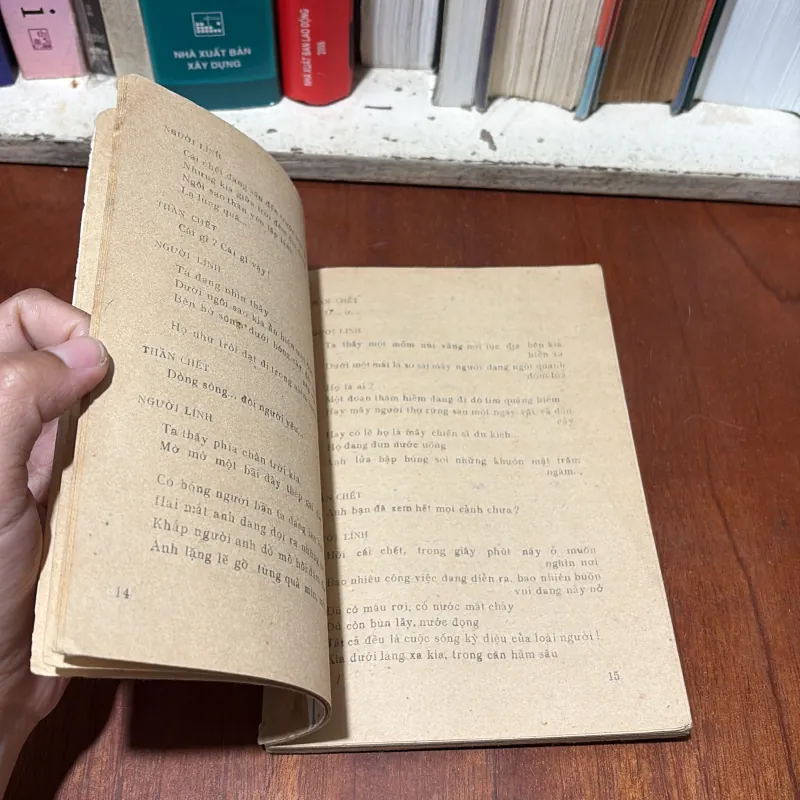 i
NHÀ XUẤT BẢN
XÂY DỰNG
NHÀ XUẤT BẢN LAO ĐỘNG
2006
NGƯỜI LÍNH
Cái chết đang săn đến
Nhưng kia giữa trời đang
Ngôi sao thân yêu lấp lánh
Lạ lùng quá...
THẦN CHẾT
Cái gì? Cái gì vậy!
NGƯỜI LÍNH
Ta đang nhìn thấy
Dưới ngôi sao kia ẩn hiện
Bên bờ sông dưới bóng
Họ như trôi dạt đi trong
THẦN CHẾT
Dòng sông... đôi người yêu...
NGƯỜI LÍNH
Ta thấy phía chân trời kia
Mờ mờ một bãi dây thép gai
Có bóng người bận ta đang
Hai mắt anh đang dọi ra những
Khắp người anh đổ mồ hôi
Anh lặng lẽ gỡ từng quả mìn,
14
THẦN CHẾT
NGƯỜI LÍNH
Ta thấy một mỏm núi vàng nơi lục địa bên kia
hiện ra
Dưới một mái lá sơ sài mấy người đang ngồi quanh
đốm lửa
Họ là ai?
Một đoàn thám hiểm đang đi dò tìm quặng hiếm
Hay mấy người thợ rừng sau một ngày vất vả đẫn
cây
Hay có lẽ họ là mấy chiến sĩ du kích...
Họ đang đun nước uống
Ánh lửa bập bùng soi những khuôn mặt trầm
ngâm...
THẦN CHẾT
Anh bạn đã xem hết mọi cảnh chưa?
NGƯỜI LÍNH
Hỡi cái chết, trong giây phút này ở muôn
nghìn nơi
Bao nhiêu công việc đang diễn ra, bao nhiêu buồn
vui đang nảy nở
Dù có máu rơi, có nước mắt chảy
Dù còn bùn lầy, nước đọng
Tất cả đều là cuộc sống kỳ diệu của loài người!
Kìa dưới làng xa kia, trong căn hầm sâu
15